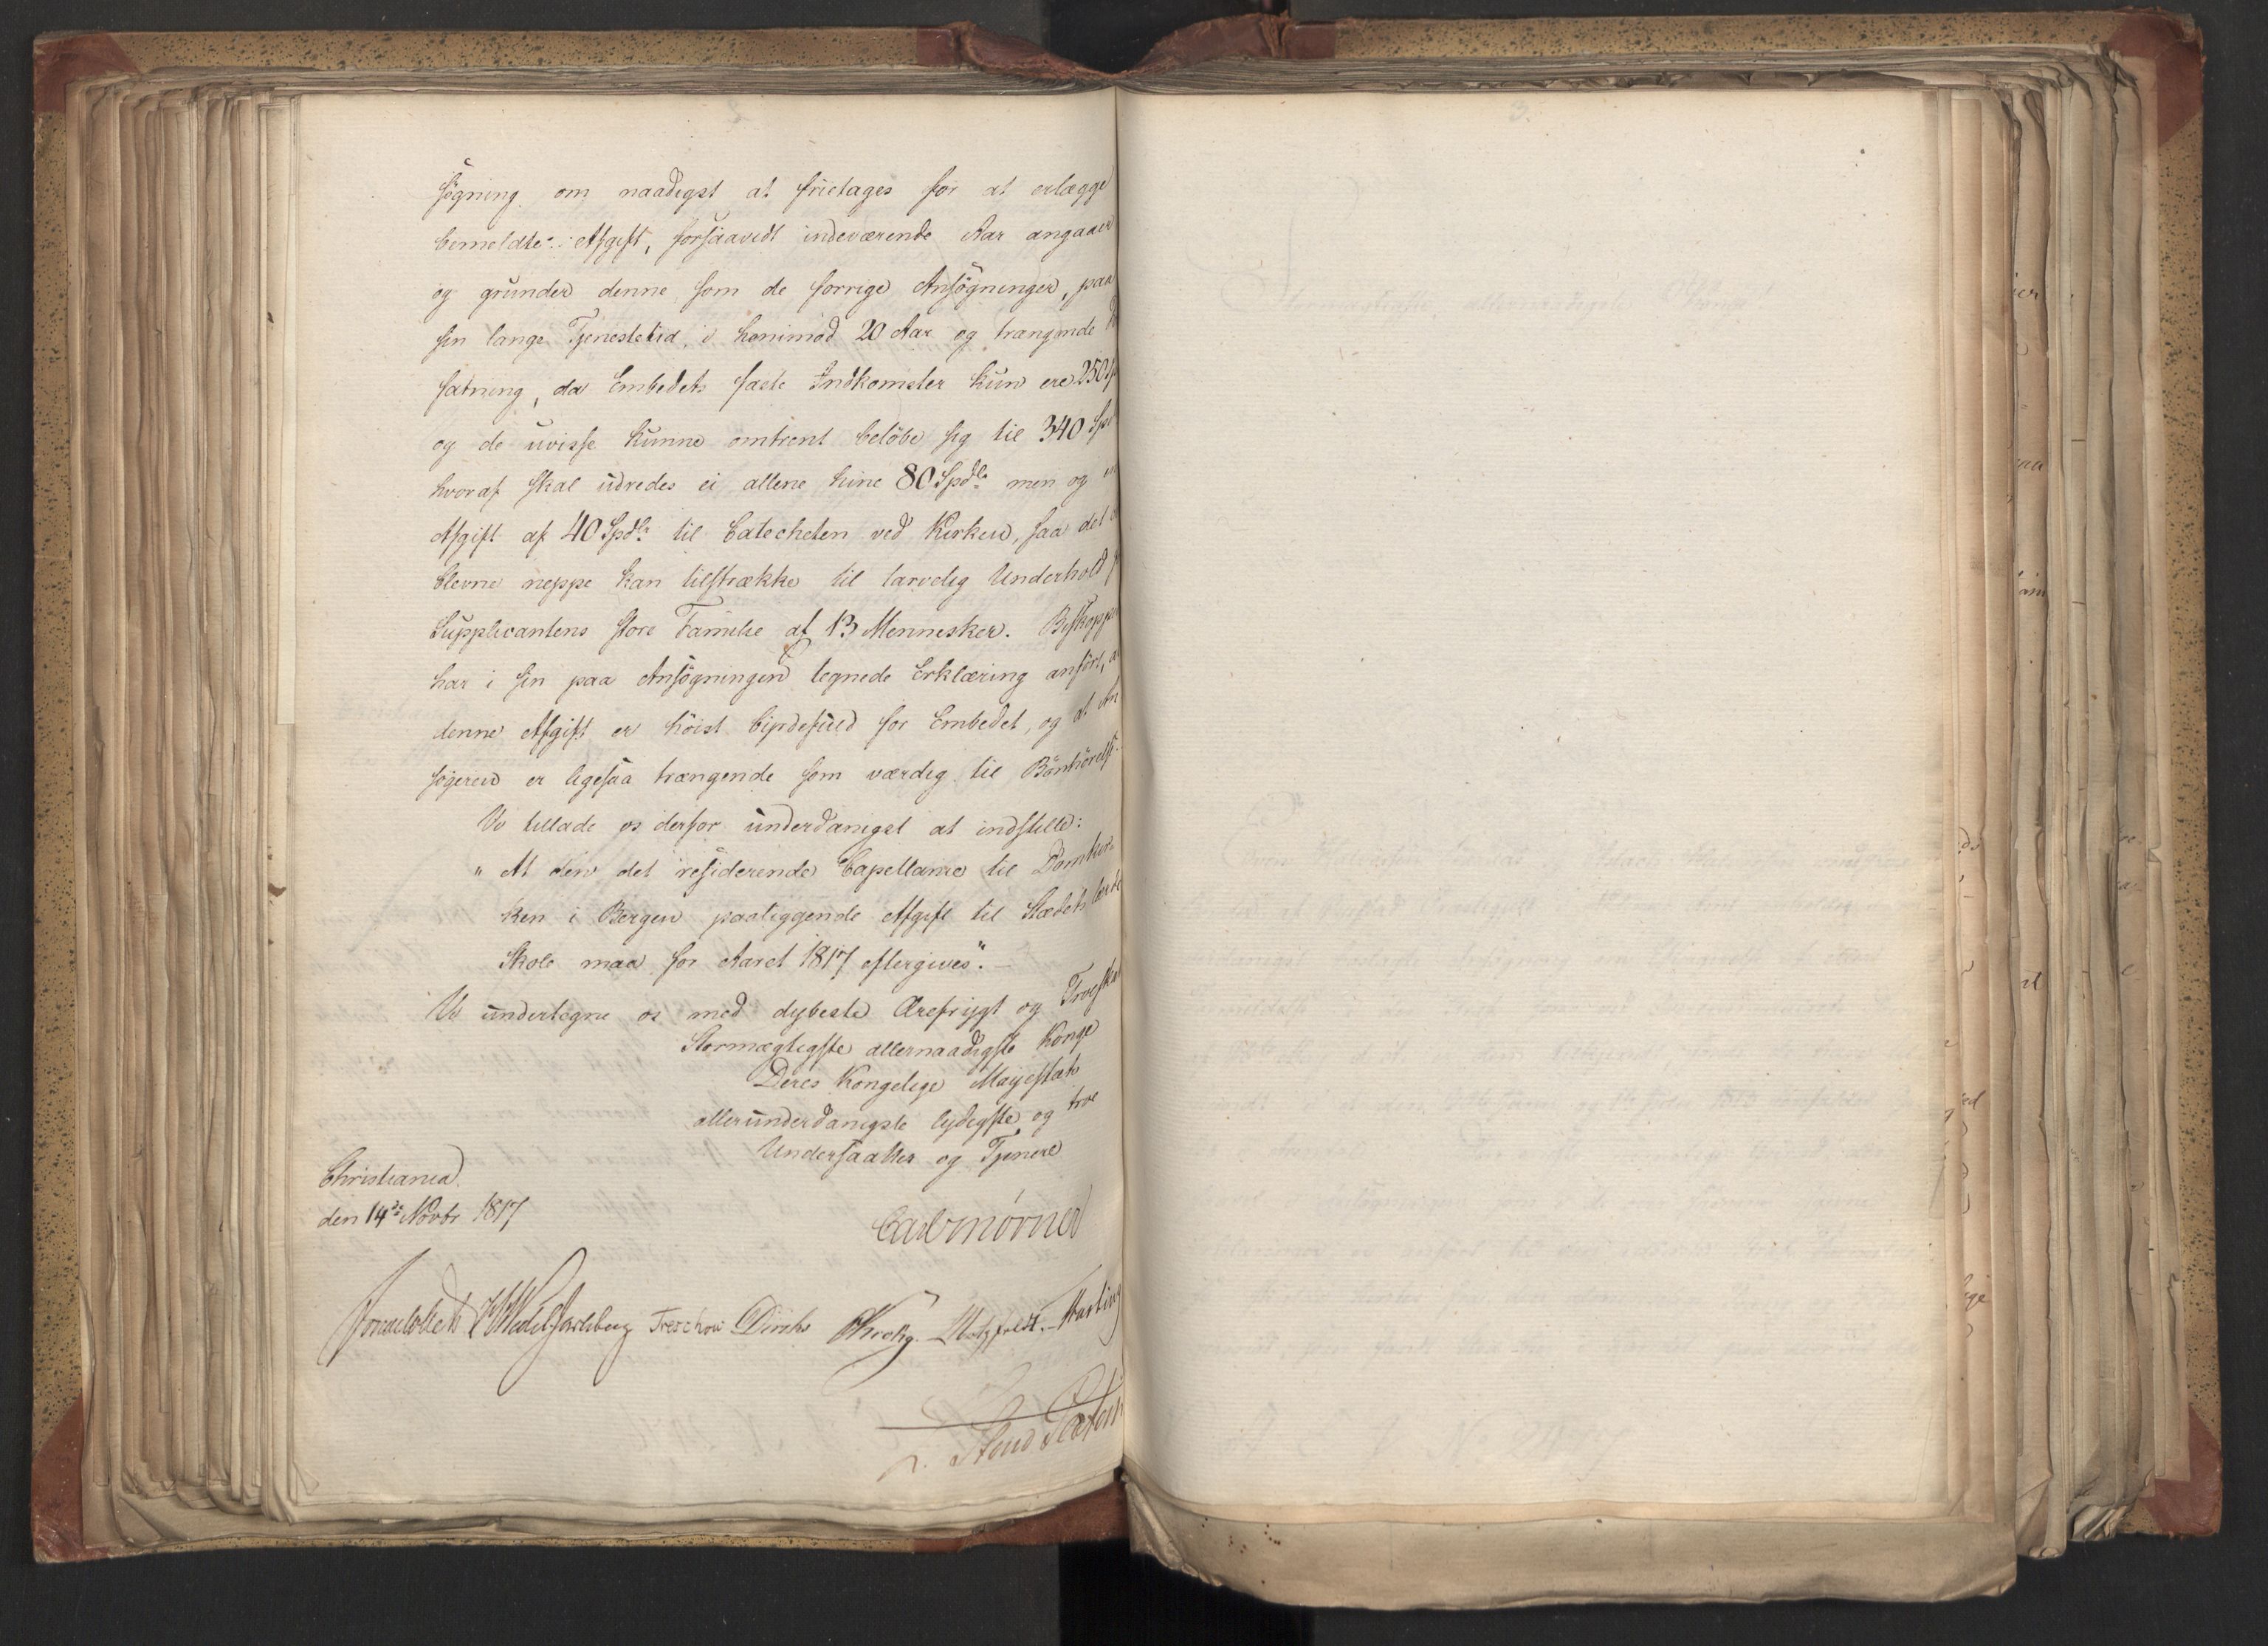 søgning om naadigst at fritages for at erlægge
bemeldte Afgift, forsaavidt indeværende Aar angaaer
og grunder denne som de forrige Ansøgninger, paa
sin lange Tjenestetid, i henimod 20 Aar og trængende
fatning, da Embedets faste Indkomster kun ere 250
og de uvisse kunne omtrent beløbe sig til 340 Spd
hvoraf skal udredes ei allene hine 80 Spdlr men og en
Afgift af 40 Spdlr til Catecheten ved Kirken, saa det
blevne neppe kan tilstrække til tarvelig Underhold
Supplicantens store Familie af 13 Mennesker. Biskoppen
har i sin paa Ansøgningen tegnede Erklæring anført, at
denne Afgift er høist byrdefuld for Embedet, og at An
søgeren er ligesaa trængende som værdig til Bønhørelse.
Vi tillade os derfor underdanigst at indstille:
" At den det residerende Capellanie til Domkir
ken i Bergen paaliggende Afgift til Stædets lærde
Skole maa for Aaret 1817 eftergives".
Vi undertegne os med dybeste Ærefrygt og Troeskab
Stormægtigste allernaadigste Konge
Deres Kongelige Majestæts
allerunderdanigste lydigste og troe
Undersaatter og Tjenere
Christiania
den 14de Novbr 1817
Carl Mörner
Sommerhielm HWedel Jarlsberg Treschow Diriks CKrohg. Motzfeldt. Fasting
Steud Platou
3.